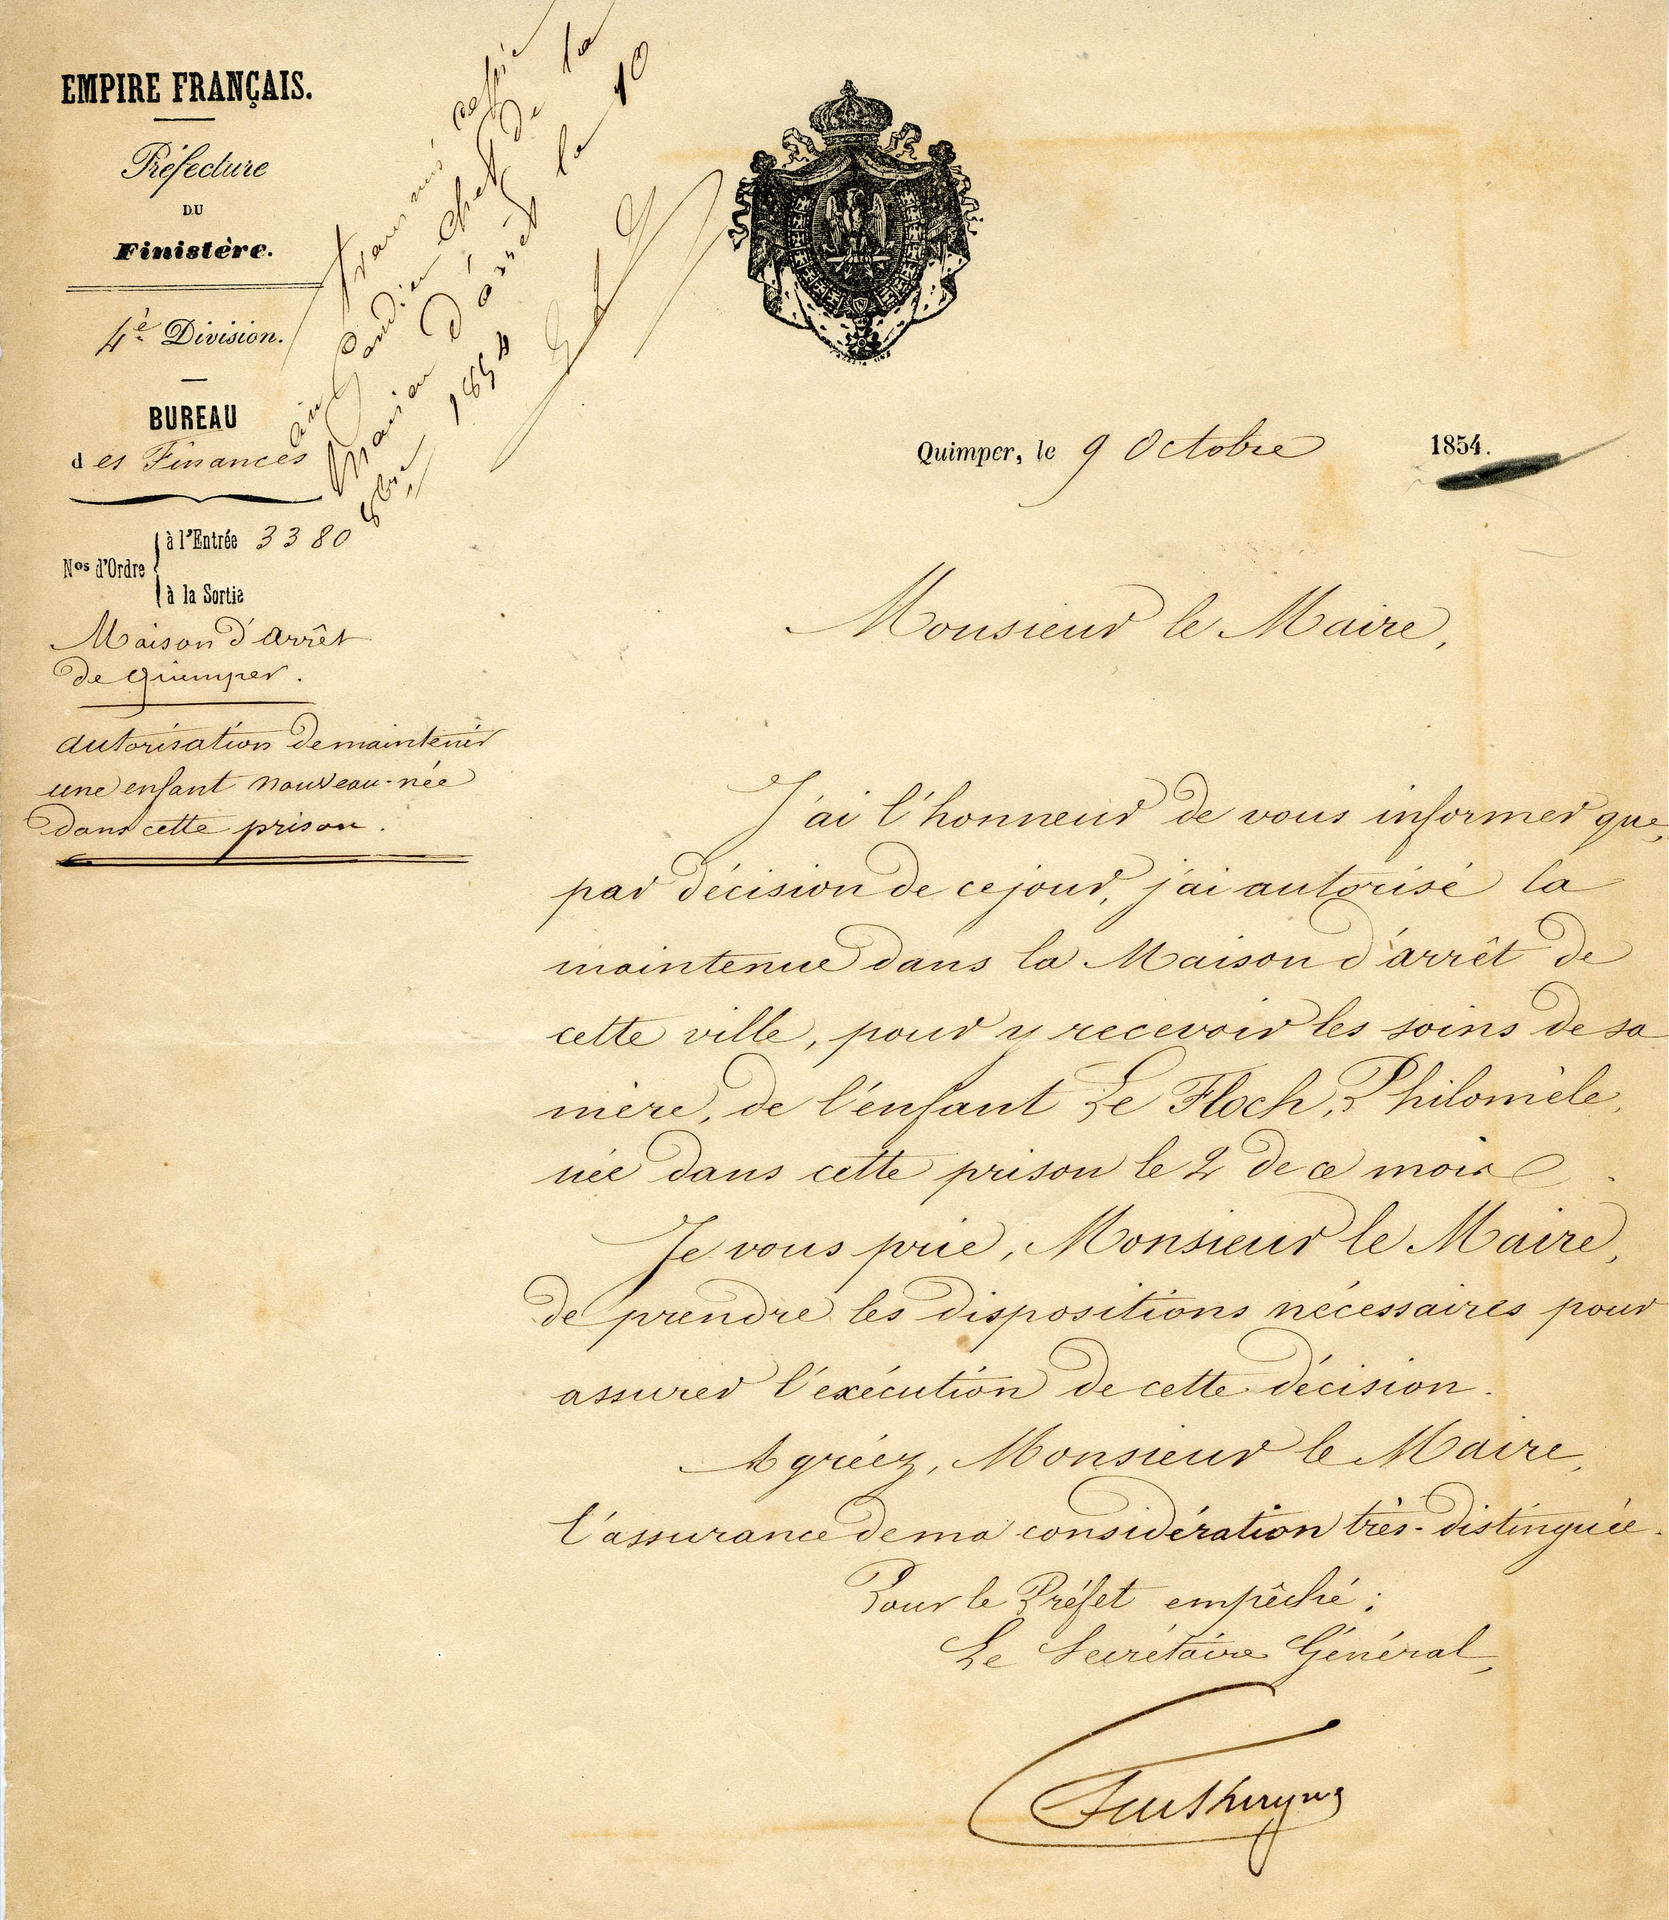 EMPIRE FRANÇAIS.
Préfecture
DU
Finistère.
4e Division.
BUREAU
des Finances
Nos d'Ordre
à l'Entrée 3380
à la Sortie
Maison d'arrêt
de Quimper.
autorisation de maintenir
une enfant nouveau-née
dans cette prison.
Transmis copie
au Gardien chef de la
Maison d'arrêt le 10
8bre 1854
Quimper, le 9 Octobre 1854.
Monsieur le Maire,
J'ai l'honneur de vous informer que,
par décision de ce jour, j'ai autorisé la
maintenue dans la Maison d'arrêt de
cette ville, pour y recevoir les soins de sa
mère, de l'enfant Le Floch, Philomèle,
née dans cette prison le 2 de ce mois.
Je vous prie, Monsieur le Maire,
de prendre les dispositions nécessaires pour
assurer l'exécution de cette décision.
Agréez, Monsieur le Maire,
l'assurance de ma considération très-distinguée.
Pour le Préfet empêché;
Le Secrétaire Général,